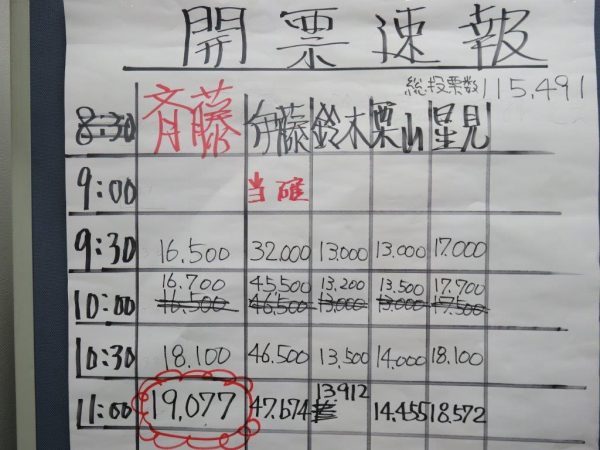 開票速報
総投票数 115,491
8:30 斉藤 伊藤 鈴木 栗山 星見
9:00 当確
9:30 16.500 32.000 13,000 13,000 17.000
16.700 45,500 13,200 13,500 17.700
10:00 16,500 46,500 13,000 13,000 17,500
10:30 18,100 46.500 13,500 14,000 18.100
13,912
11:00 19,077 47.674 14.455 18,572